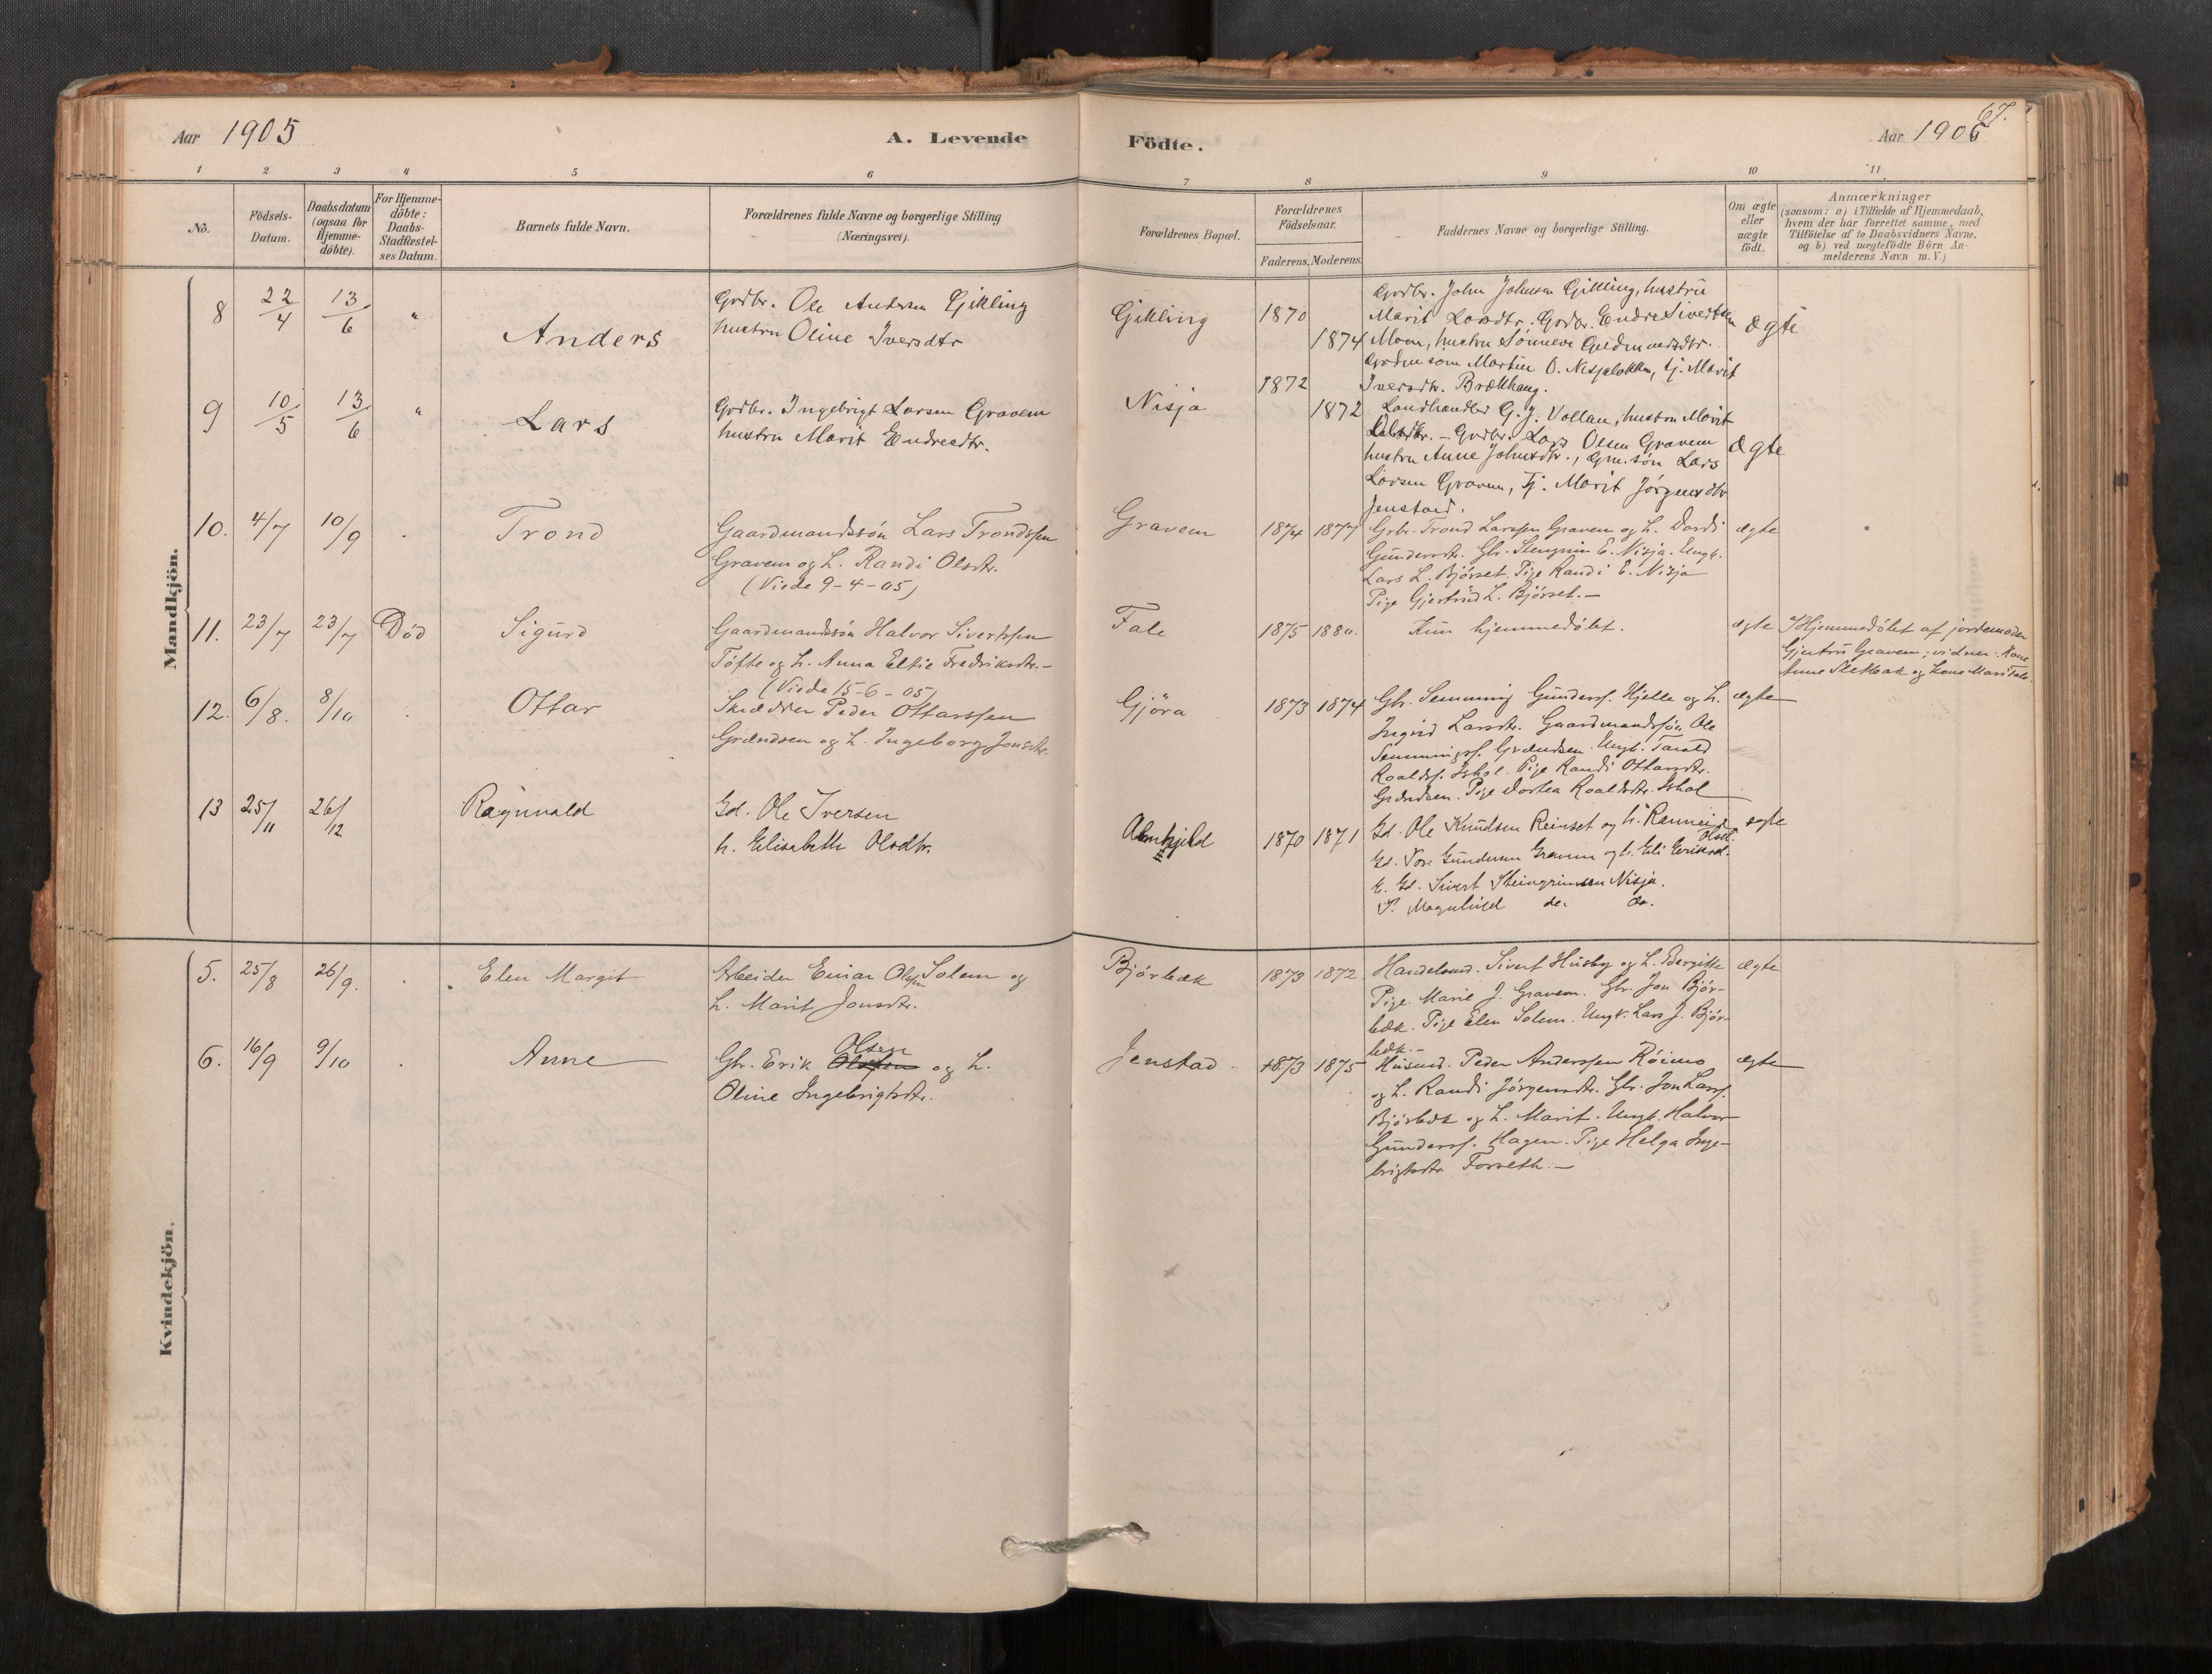 Aar 1905
A. Levende
Födte.
Aar 1905
67.
1 2 3 4 5 6 7 8 9 10 11.
No.
Födsels-
Datum.
Daabsdatum
(ogsaa för
Hjemme-
döbte).
For Hjemme-
döbte:
Daabs-
Stadfæstel-
ses Datum.
Barnets fulde Navn.
Forældrenes fulde Navne og borgerlige Stilling
(Næringsvei).
Forældrenes Bopæl.
Forældrenes
Födselsaar.
Faderens. Moderens.
Faddernes Navne og borgerlige Stilling.
Om ægte
eller
uægte
födt.
Anmærkninger
(saasom: a) i Tilfælde af Hjemmedaab,
hvem der har forrettet samme, med
Tilföielse af to Daabsvidners Navne,
og b) ved uægtefödte Börn An-
melderens Navn m. V.)
Mandkjön.
8 22/4 13/6 " Anders
Grdbr. Ole Andersen Gikling
hustru Oline Iversdtr
Gikling 1870 1874
Grdbr. John Johnsen Gikling, hustru
Marit Larsdtr. Grdbr. Endre Sivertsen
Moen, hustru Sönneve
Martin O. Nisjaløkken, tj. Marit
Iversdtr. Brækhaug.
ægte
9 10/5 13/6 " Lars
Grdbr. Ingebrigt Larsen Gravem
hustru Marit Endresdtr.
Nisja 1872 1872
Landhandler G. J. Vollan, hustru Marit
Olsdtr. - Grdbr. Lars Olsen Gravem
hustru Anne Johnsdtr., Gm. søn Lars
Larsen Gravem, Tj. Marit Jørgensdtr
Jenstad.
ægte
10. 4/7 10/9 . Trond
Gaardmandssøn Lars Trondssen
Gravem og h. Randi Olsdtr.
(Viede 9-4-05)
Gravem 1874 1877
Grbr. Trond Larssen Gravem og h. Dordi
Gundersdtr. Gbr. Stengrim E. Nisja. Ungk.
Lars L. Bjørset. Pige Randi E. Nisja
Pige Gjertrud L. Bjørset.-
ægte
11. 23/7 23/7 Død Sigurd
Gaardmandssøn Halvor Sivertssen
Tøfte og h. Anna Eltie Fredriksdtr.-
(Viede 15-6-05)
Fale 1875 1880.
Kun hjemmedøbt.
ægte
Hjemmedøbt af jordemoder
Gjertru Gravem; vidner: Kone
Anne Slethak og Kone Mari Fale.
12. 6/8. 8/10 . Ottar
Skrædder Peder Ottarssen
Grændsen og h. Ingeborg Jonsdtr.
Gjøra 1873 1874
Gbr. Semming Gunderss. Hjelle og h.
Ingrid Larsdtr. Gaardmandssøn Ole
Semmingss. Grændsen. Ungk. Tarald
Roaldss. Ishol. Pige Randi Ottarsdtr.
Grændsen. Pige Dortea Roaldsdtr. Ishol
ægte
13 25/11 26/12 Ragnvald
Gd. Ole Iversen
h. Elisabeth Olsdtr.
Almskjeld 1870 1871
Gd. Ole Knudsen Reinset og h. Rannei
Olsd.
Gd. Tore Gundersen Gravem og h. Eli Eriksd.
E. Gd. Sivert Steingrimsen Nisja.
P. Magnhild do. do.
ægte
Kvindekjön.
5. 25/8 26/9. . Elen Margit
Arbeider Einar Olssen Solem og
h. Marit Jonsdtr.
Bjørbæk 1873 1872.
Handelsmd. Sivert Husby og h. Bergitte
Pige Marie J. Gravem. Gbr. Jon Bjør-
bæk. Pige Elen Solem. Ungk. Lars J. Bjør-
bæk.-
ægte
6. 16/9 9/10 . Anne
Olsen
Gbr. Erik Olssen og h.
Oline Ingebrigtsdtr.
Jenstad 1873 1875
Husmd. Peder Anderssen Röimo
og h. Randi Jörgensdtr. Gbr. Jon Larss.
Bjørbæk og h. Marit. Ungk. Halvor
Gunderss. Hagen. Pige Helga Inge-
brigtsdtr Forseth.-
ægte